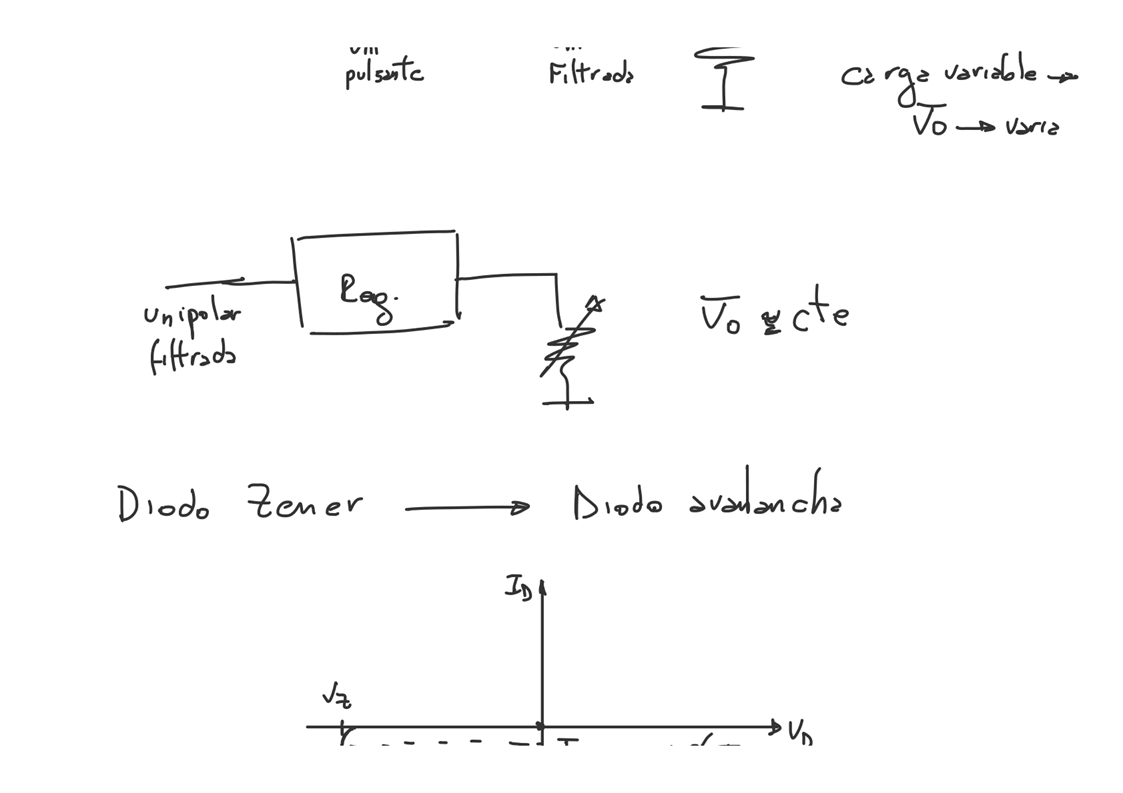 pulsante
Filtrada
carga variable →
V̅o → varia
Reg.
unipolar
filtrada
V̅o ≅ cte
Diodo Zener → Diodo avalancha
I_D
V_Z
V_D